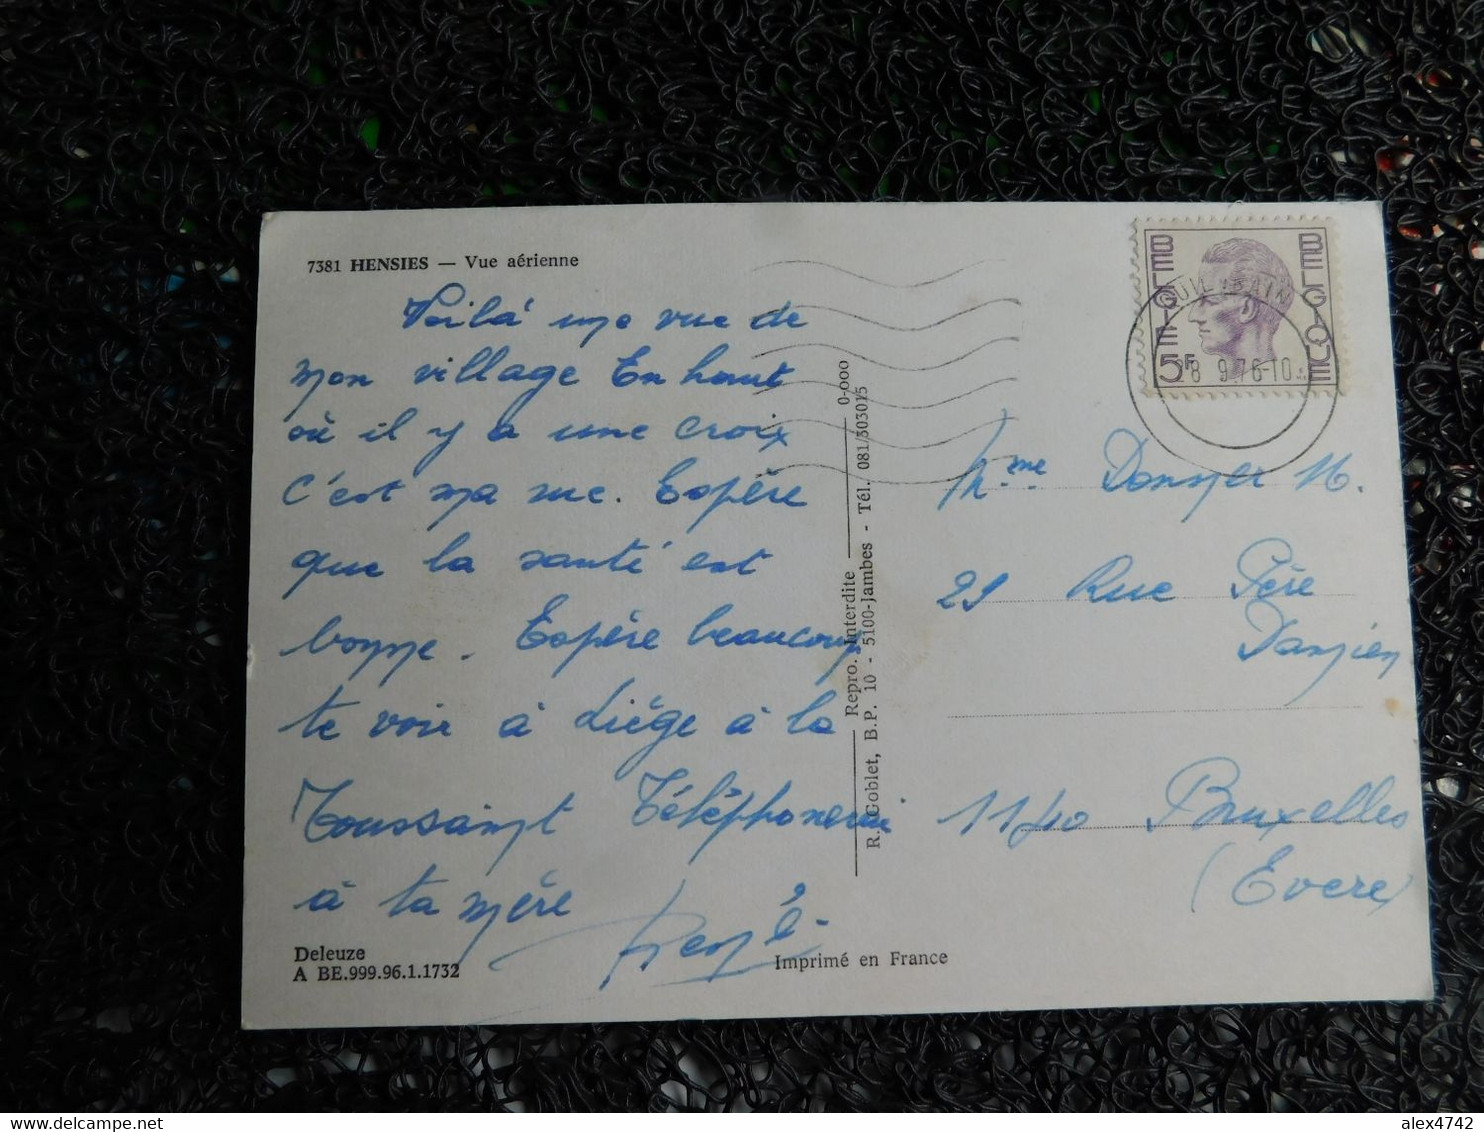 7381 HENSIES — Vue aérienne
Voilà une vue de
mon village En haut
où il y a une croix
c'est ma rue. Espère
que la santé est
bonne. Espère beaucoup
te voir à Liège à la
Toussaint Téléphonerai
à ta mère
René
Deleuze
A BE.999.96.1.1732
Imprimé en France
Repro. Interdite 0-000
R. Goblet, B.P. 10 - 5100-Jambes - Tél. 081/303015
BELGIE
BELGIQUE
5F
28 9.76-10
Mme M.
29 Rue Père
Damien
1140 Bruxelles
(Evere)
alex4742